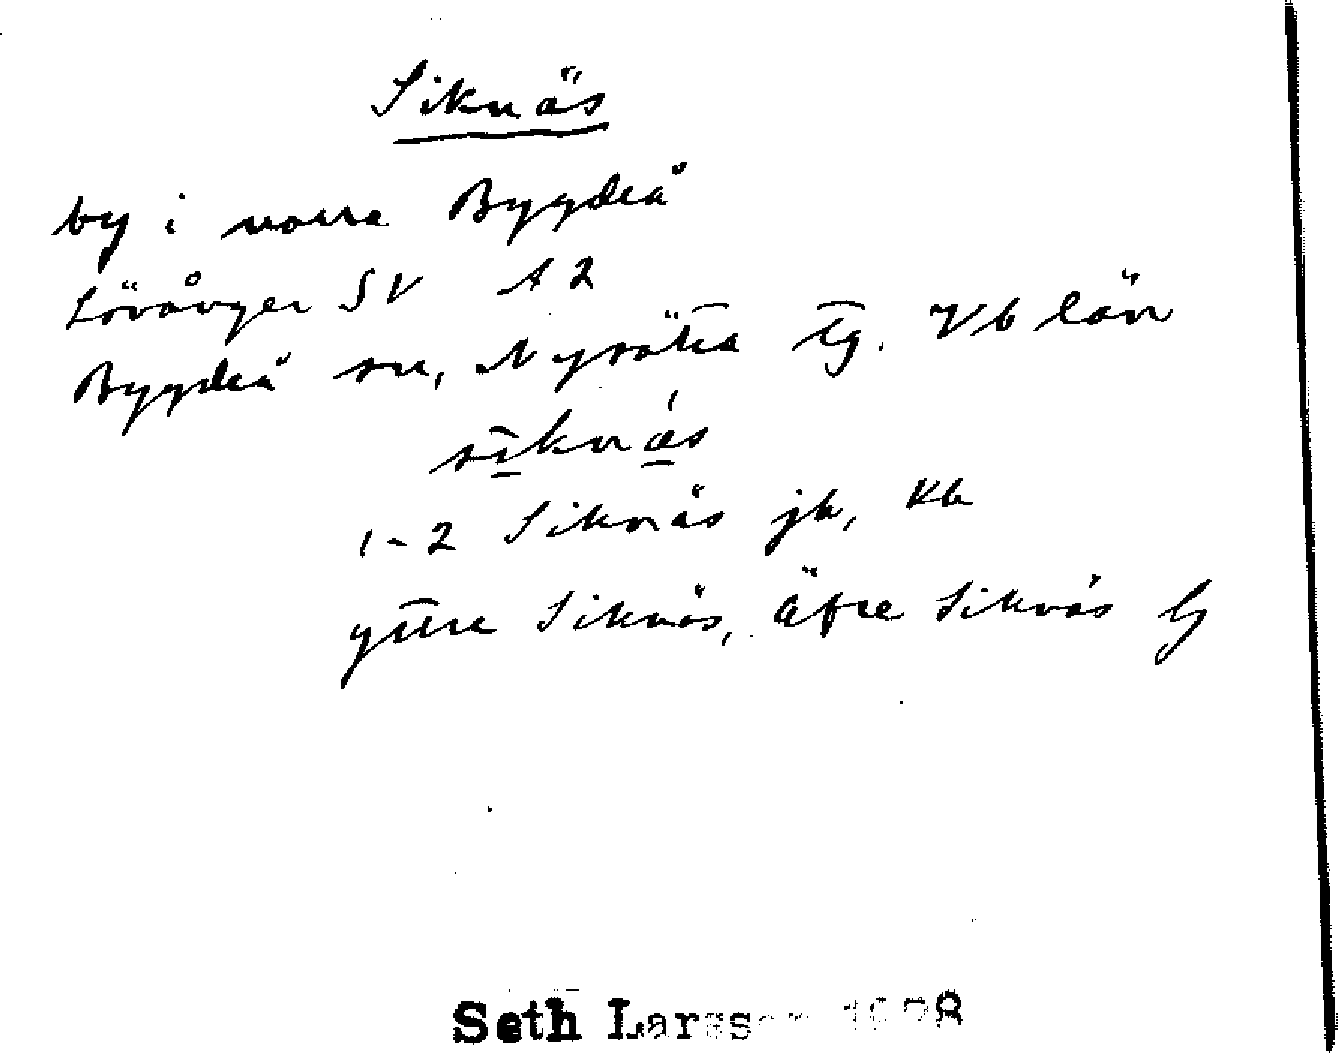 Siknäs
by i norra Bygdeå
Lövånger SV A 2
Bygdeå sn, Nysätra tg. Vb län
siknás
1-2 Siknäs jb, Kb
yttre Siknäs, Äfre Siknäs G
Seth Larsson 1978